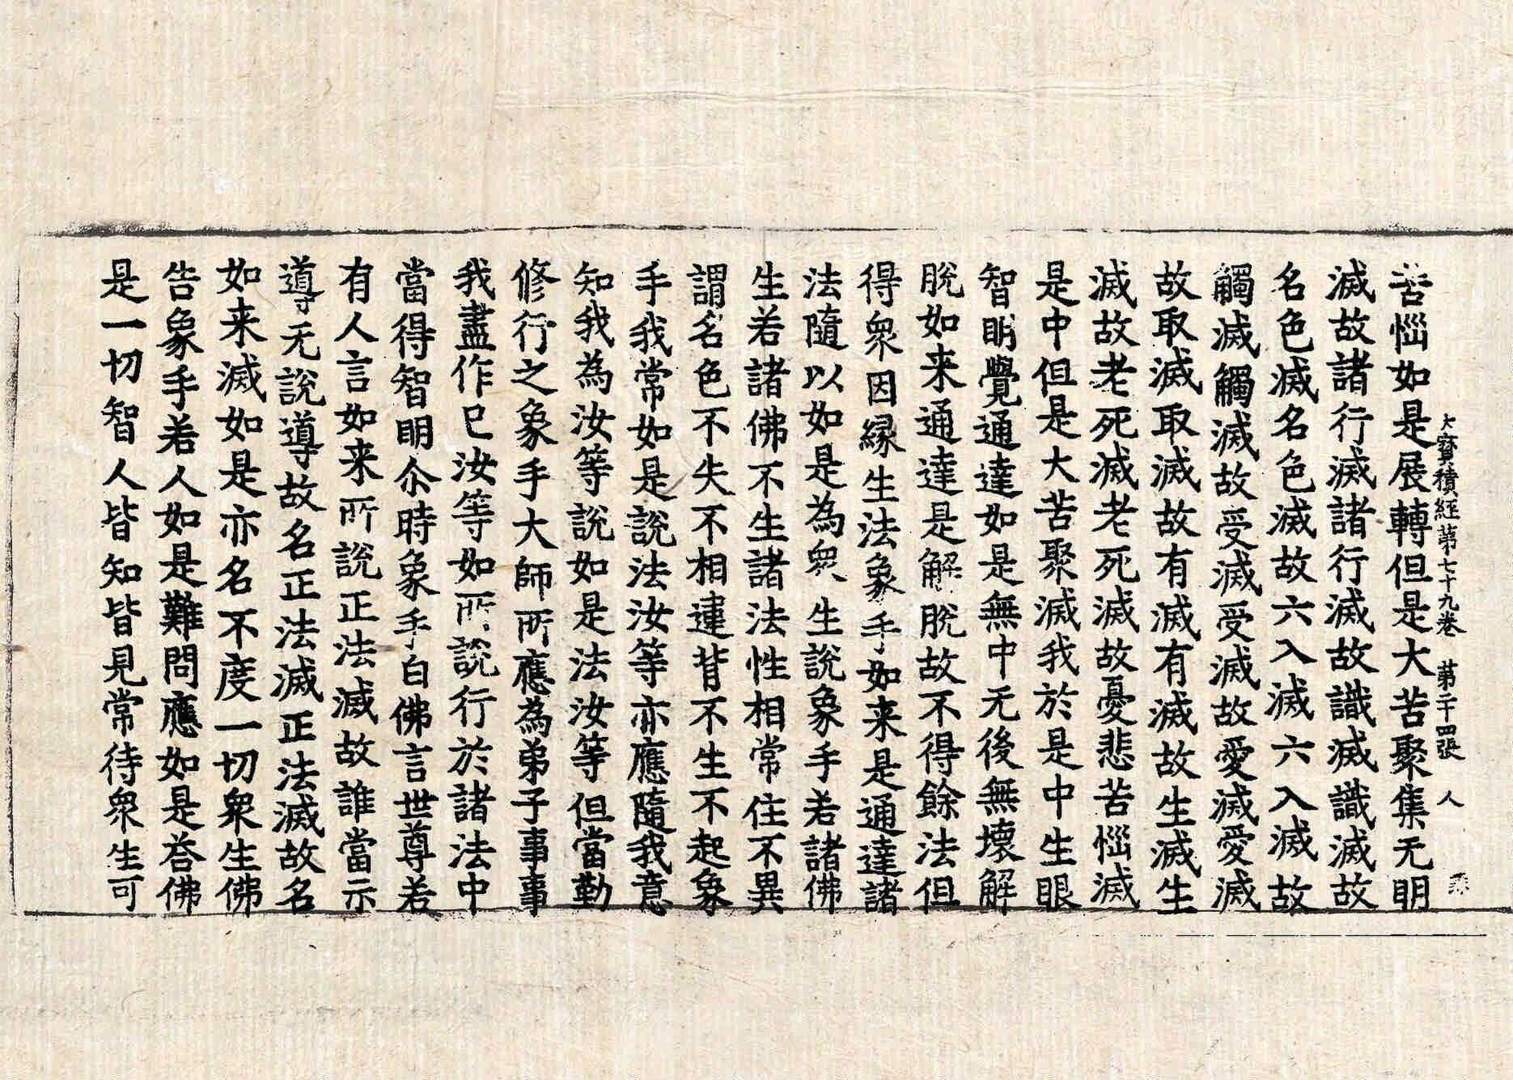 大寶積經第七十九卷　第二十四張　人
苦惱如是展轉但是大苦聚集无明
滅故諸行滅諸行滅故識滅識滅故
名色滅名色滅故六入滅六入滅故
觸滅觸滅故受滅受滅故愛滅愛滅
故取滅取滅故有滅有滅故生滅生
滅故老死滅老死滅故憂悲苦惱滅
是中但是大苦聚滅我於是中生眼
智明覺通達如是無中无後無壞解
脫如来通達是解脫故不得餘法但
得眾因緣生法象手如来是通達諸
法隨以如是為眾生說象手若諸佛
生若諸佛不生諸法性相常住不異
謂名色不失不相違背不生不起象
手我常如是說法汝等亦應隨我意
知我為汝等說如是法汝等但當勤
修行之象手大師所應為弟子事事
我盡作已汝等如所說行於諸法中
當得智明尒時象手白佛言世尊若
有人言如来所說正法滅故誰當示
導无說導故名正法滅正法滅故名
如来滅如是亦名不度一切眾生佛
告象手若人如是難問應如是荅佛
是一切智人皆知皆見常待眾生可